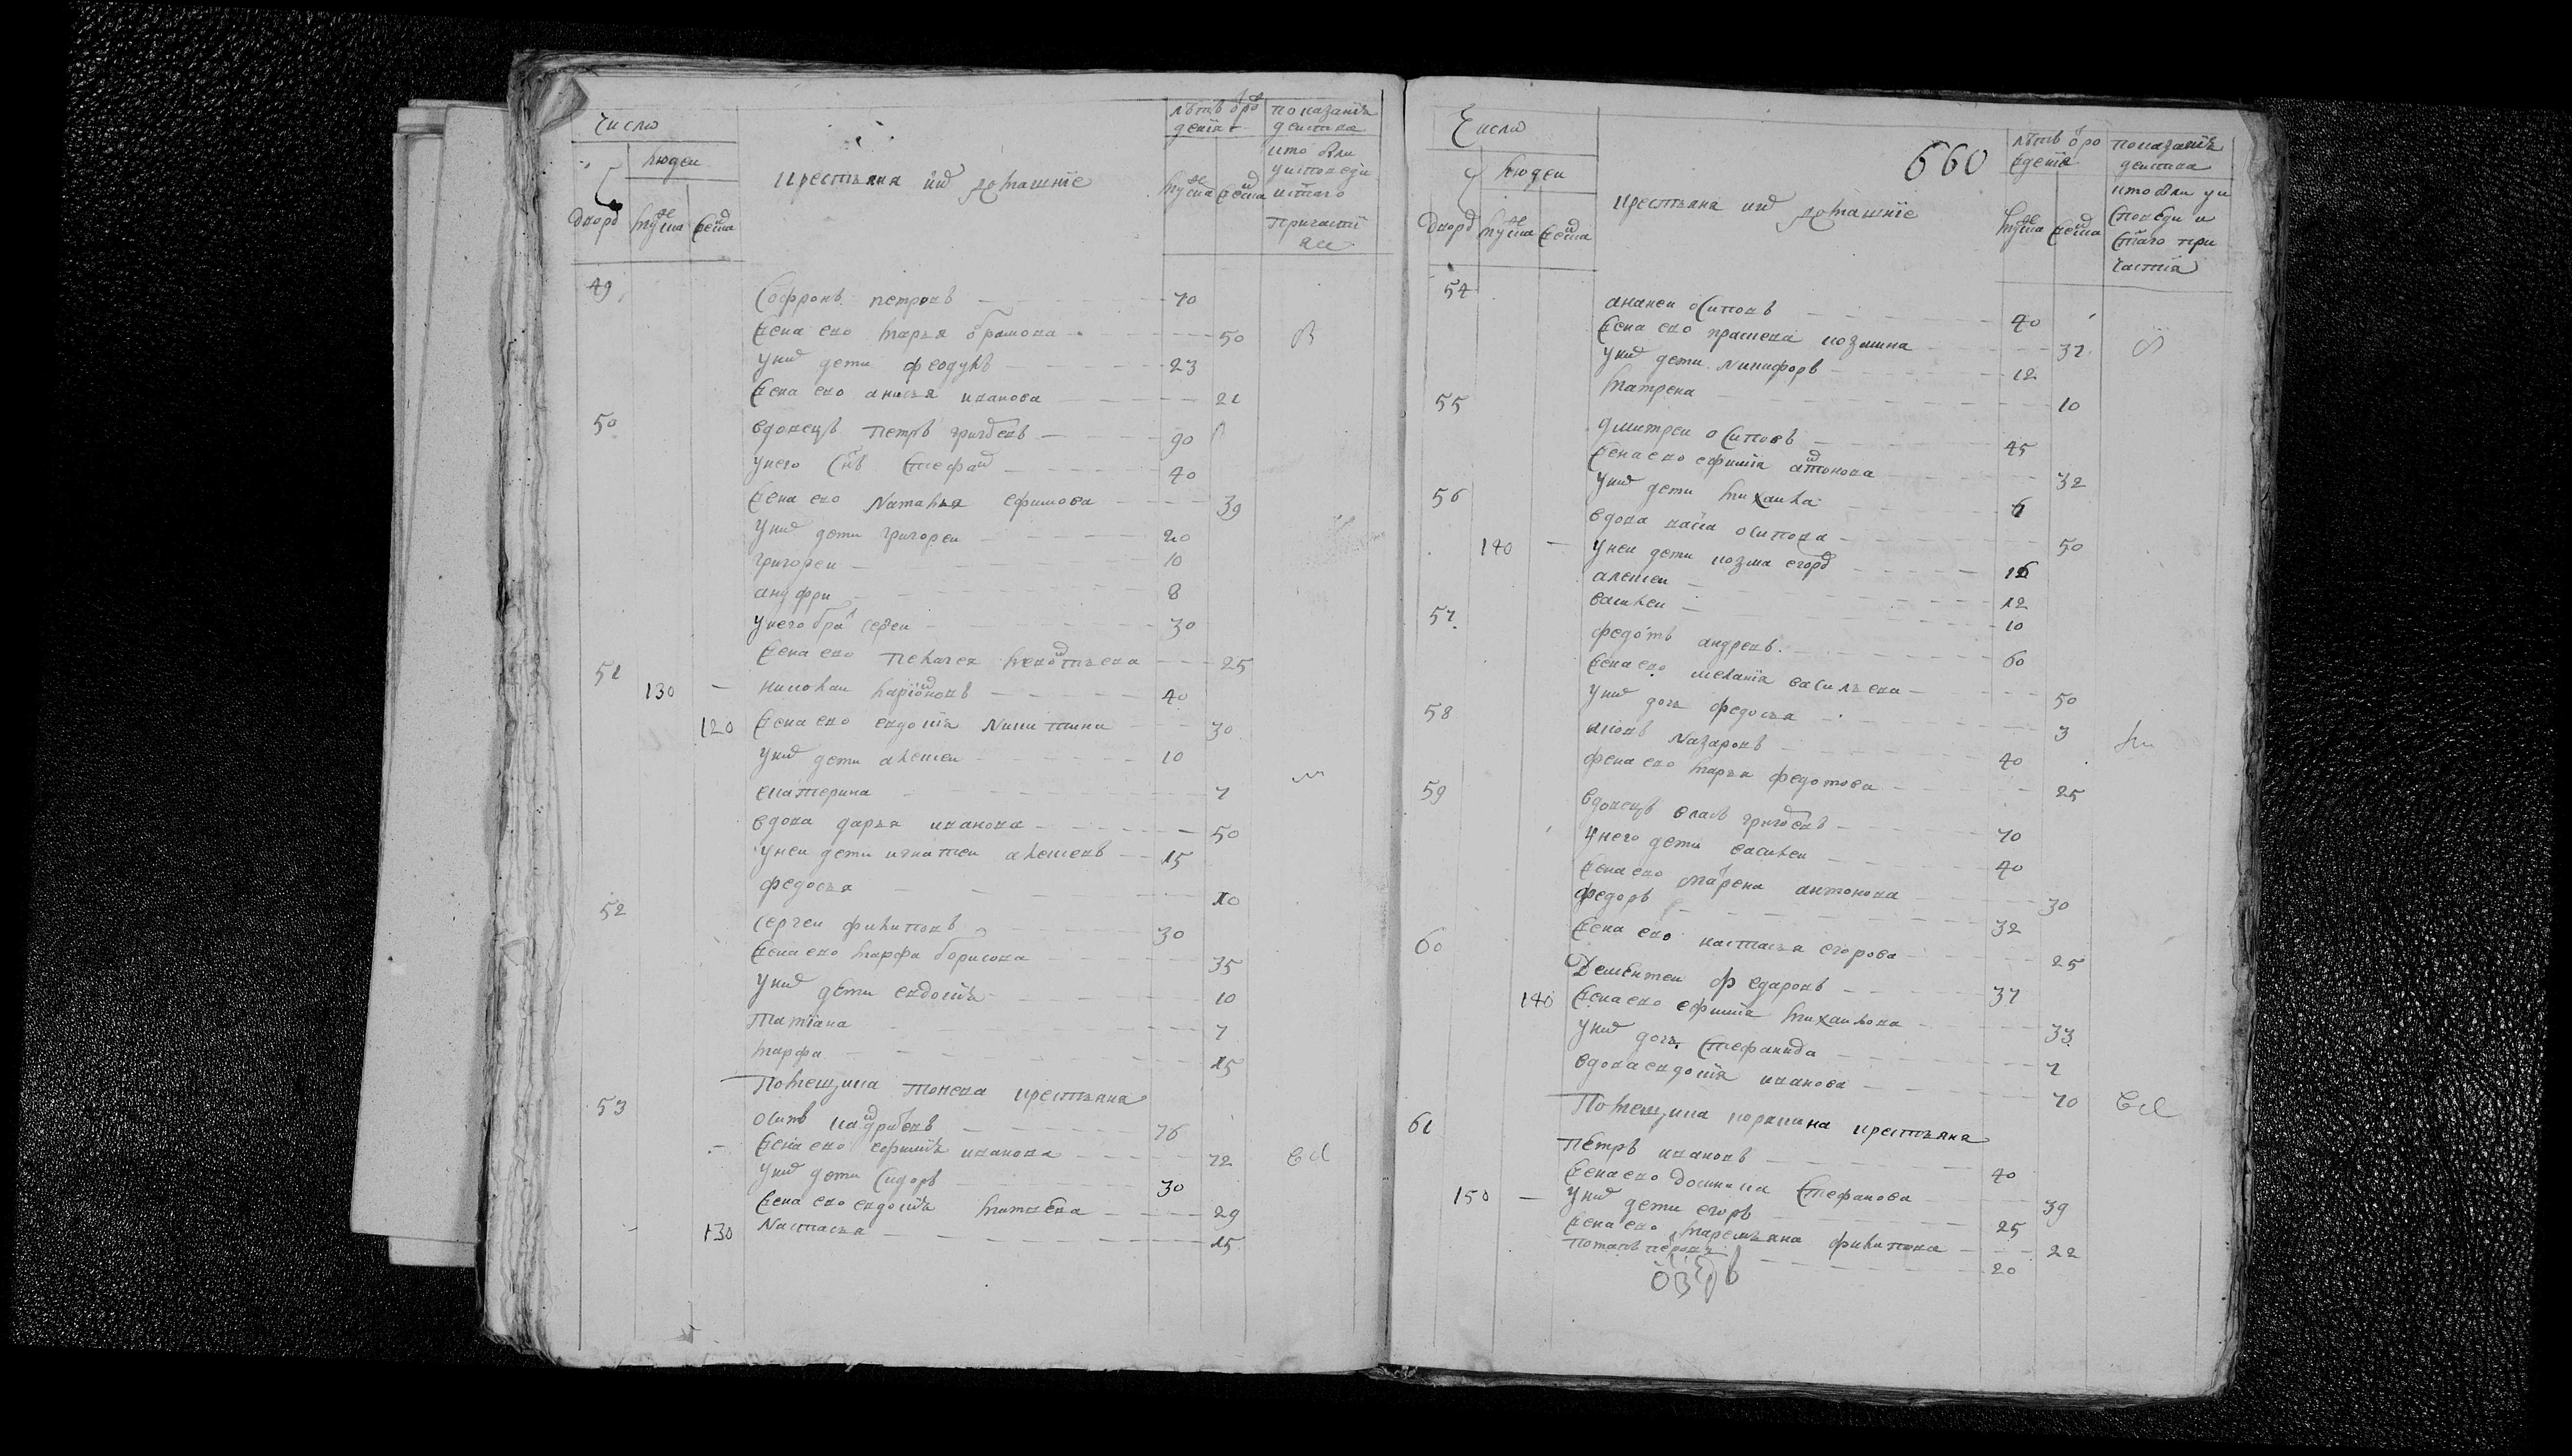 Число
людеи
дворо
мужеска
женска
крестьяна и их домашние
лѣтъ о рождения
мужеска
женска
показания деиства
кто был у исповеди и стаго причастия
49
Софронъ петровъ 70
жена ево марья абрамова 50
у них дети феодулъ 23
жена ево анисья иванова 21
50
вдовецъ петръ григоревъ 90
у него снъ стефан 40
жена ево наталья ефимова 39
у них дети григореи 20
григореи 10
ануфри 8
у него брат сергеи 30
жена ево пелагея 25
51
130 николаи ларионовъ 40
120 жена ево евдокия никитина 30
у них дети алексеи 10
екатерина 7
вдова дарья иванова 50
у неи дети игнатеи алексевъ 15
федосья 10
52
сергеи филиповъ 30
жена ево марфа борисова 35
у них дети евдокия 10
татияна 7
марфа 15
помещика крестьяна
53
осипъ 76
жена ево ефимия иванова 72
у них дети сидоръ 30
жена ево евдокия матвева 29
130 настасья 15
660
Число
людеи
дворо
мужеска
женска
крестьяна и их домашние
лѣтъ о рождения
мужеска
женска
показания деиства
кто был у исповеди и стаго причастия
54
ананеи осиповъ 40
жена ево прасковя козмина 37
у них дети никифоръ 12
матрена 10
55
дмитреи осиповъ 45
жена ево ефимия антонова 32
у них дети михаила 6
56
вдова осипова 50
140 у неи дети козма егоро 16
алексеи 12
василеи 10
57
федотъ андревъ 60
жена ево мелания васильева 50
у них дочь федосья 3
58
яковъ назаровъ 40
жена ево марья федотова 25
59
вдовецъ власъ григоревъ 70
у него дети василеи 40
жена ево матрена антонова 30
федоръ 32
жена ево настасья егорова 25
60
Дементеи федаровъ 37
140 жена ево ефимия михаилова 33
у них дочь стефанида 7
вдова евдокия иванова 70
помещика крестьяна
61
петръ ивановъ 40
жена ево домника стефанова 39
150 у них дети егоръ 25
жена ево маремьяна филипова 22
потапъ петровъ 20